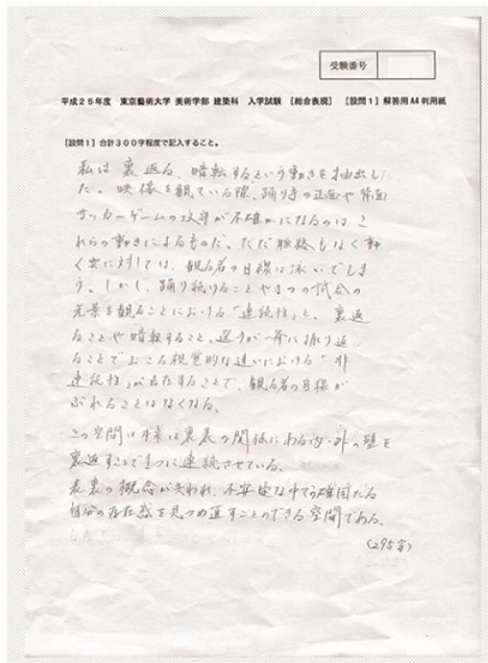 受験番号
平成25年度 東京藝術大学 美術学部 建築科 入学試験 [総合表現] [設問1] 解答用A4判用紙
[設問1] 合計300字程度で記入すること。
私は裏返る、暗転するという動きを抽出し
た。映像を観ている際、踊り子の正面や背面
サッカーゲームの攻守が不確かになるのはこ
れらの動きによるものだ。ただ脈絡もなく動
く姿に対しては、観る者の目線は泳いでしま
う。しかし、踊り続けることや1つの試合の
光景を観ることにおける“連続性”と、裏返
ることや暗転すること、選手が一斉に振り返
ることでおこる視覚的な違いにおける“非
連続性”が
することで、観る者の目線が
ぶれることはなくなる。
この空間は本来は裏表の関係にある内・外の壁を
裏返すことで1つに連続させている。
表裏の概念が失われ、不安定な中での確固たる
自分の存在感を見つめ直すことのできる空間である。
(295字)